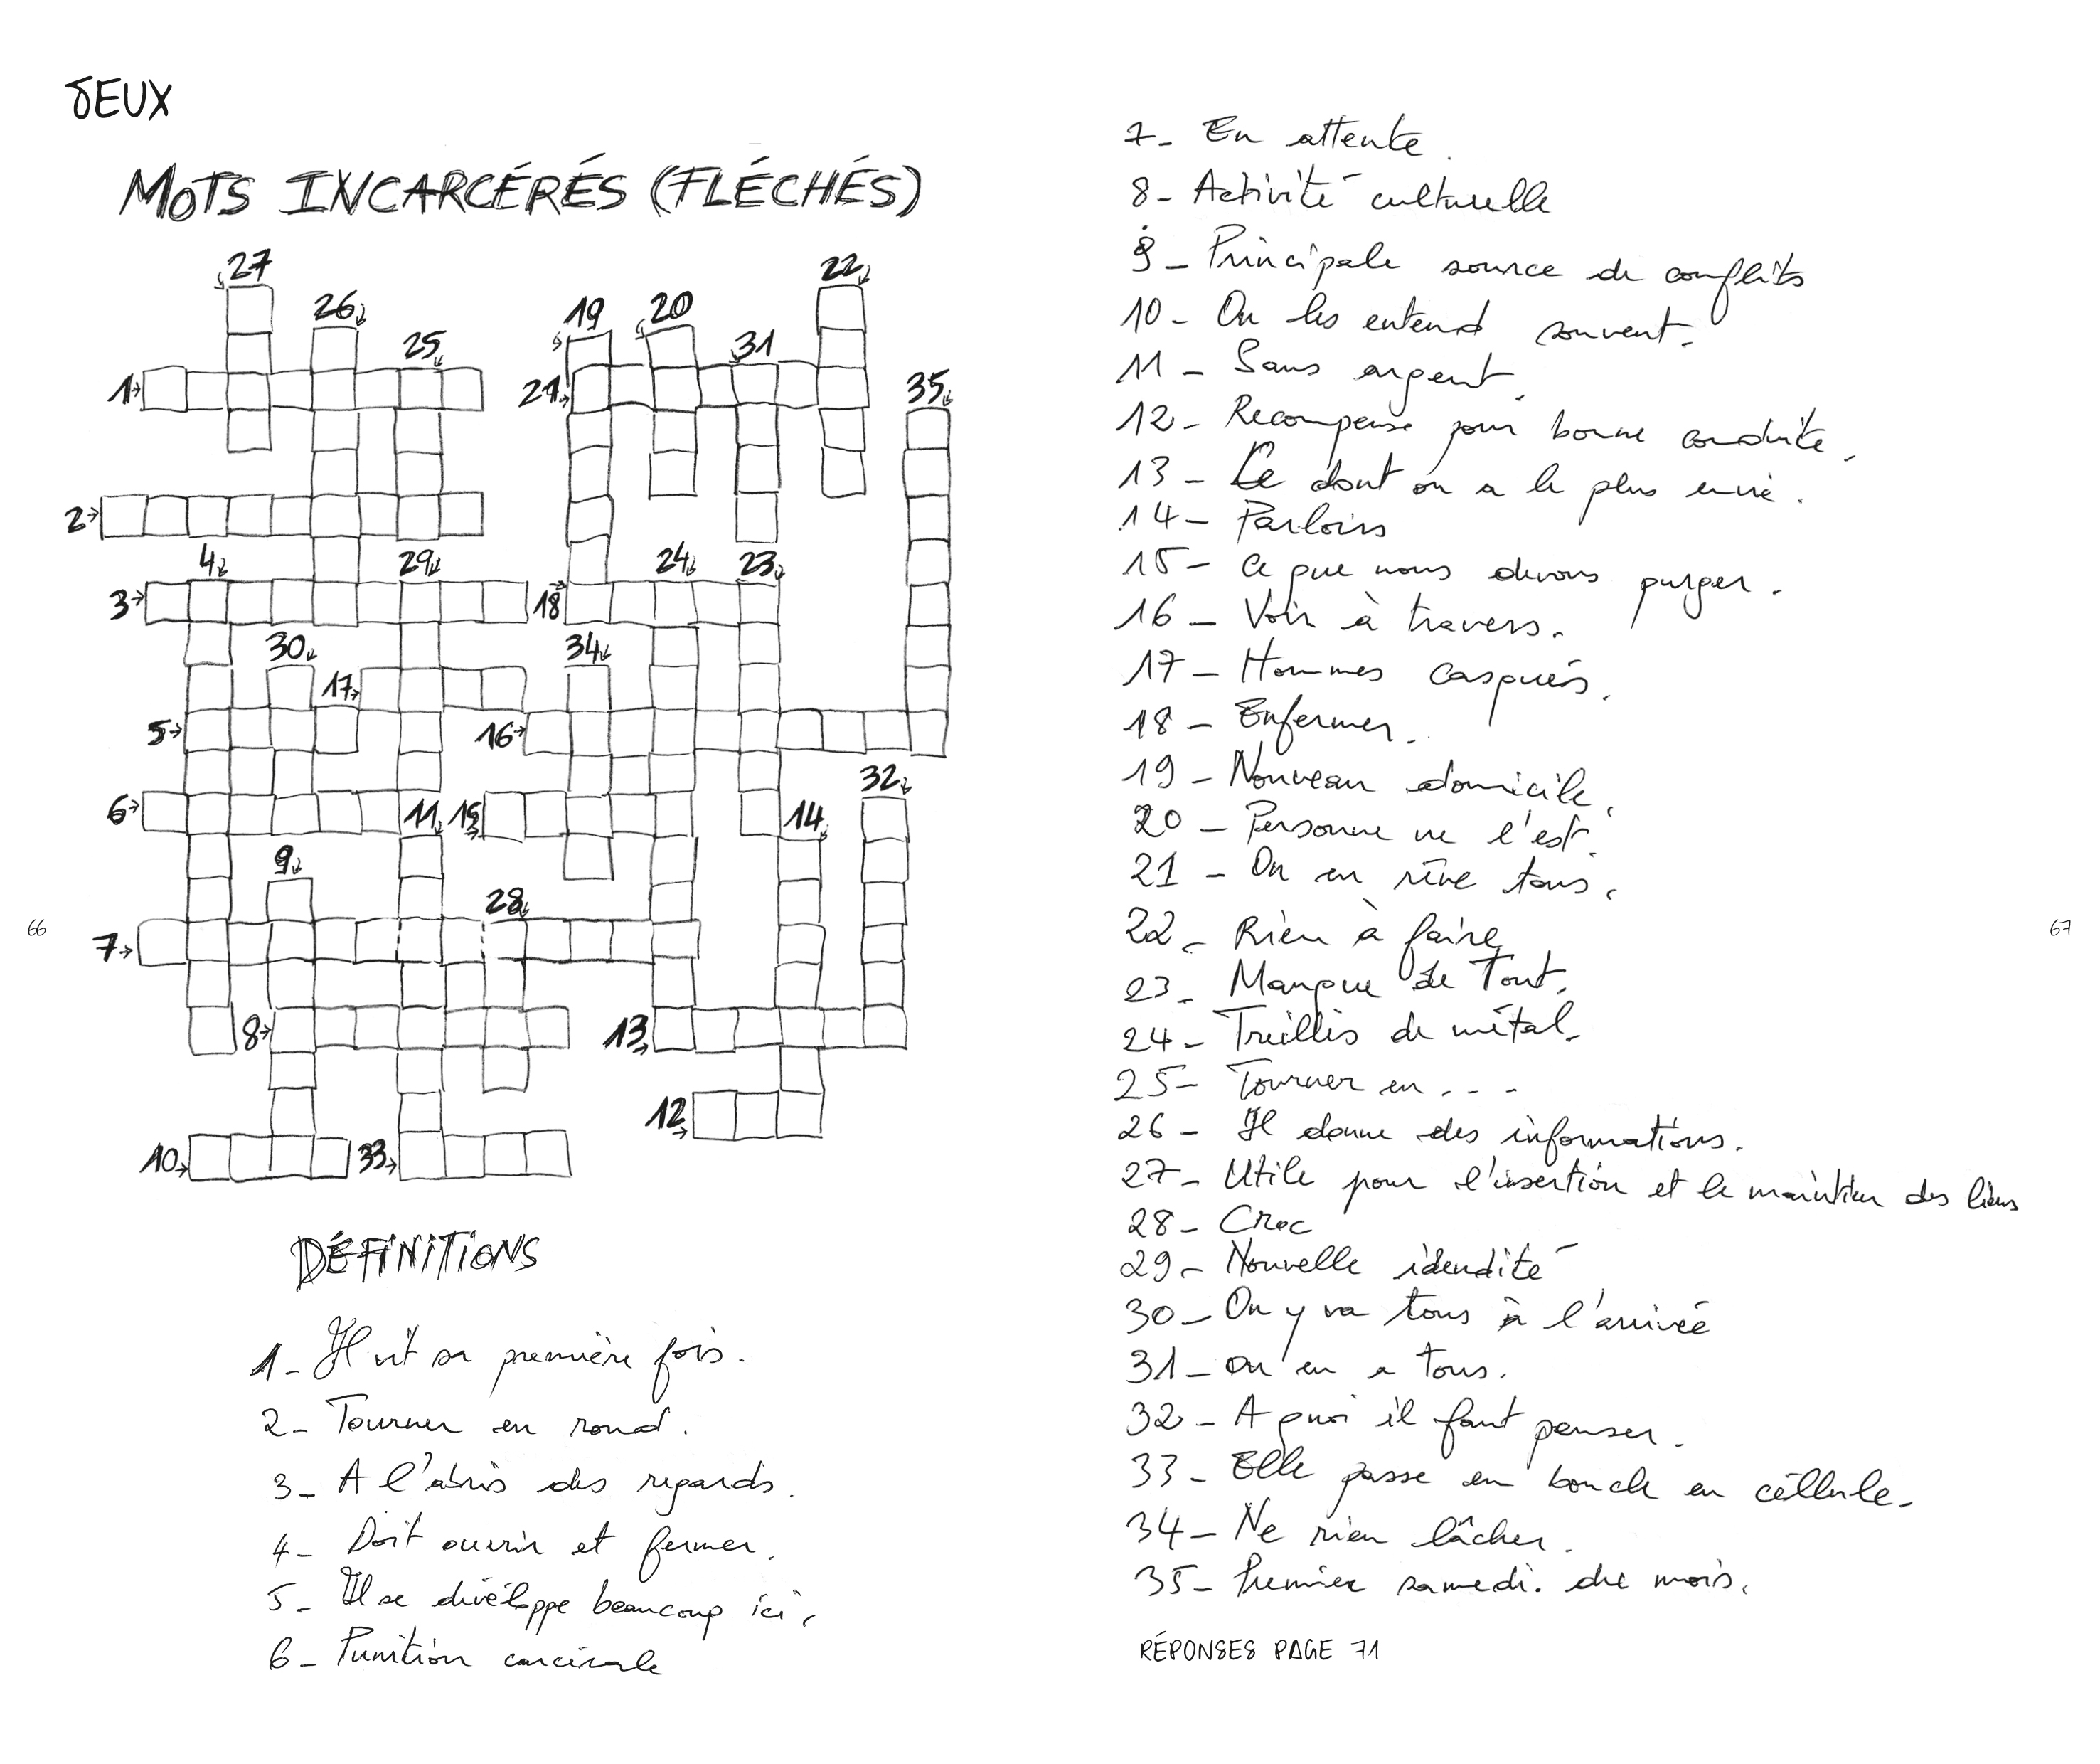 JEUX
MOTS INCARCÉRÉS (FLÉCHÉS)
27
22
26
19
20
25
31
1
21
35
2
4
29
24
23
3
18
30
34
17
5
16
32
6
11
15
14
9
28
7
8
13
12
10
33
DÉFINITIONS
1_ Il vit sa première fois.
2_ Tourner en rond.
3_ A l'abris des regards.
4_ Doit ouvrir et fermer.
5_ Il se dévéloppe beaucoup ici.
6_ Punition carcérale
66
7_ En attente.
8_ Activité culturelle
9_ Principale source de conflits
10_ On les entend souvent.
11_ Sans argent.
12_ Recompense pour bonne conduite.
13_ Ce dont on a le plus envie.
14_ Parloirs
15_ Ce que nous devons purger.
16_ Voir à travers.
17_ Hommes casqués.
18_ Enfermer.
19_ Nouveau domicile.
20_ Personne ne l'est.
21_ On en rêve tous.
22_ Rien à faire
23_ Manque de Tout.
24_ Treillis de métal.
25_ Tourner en . . .
26_ Il donne des informations.
27_ Utile pour l'insertion et le maintien des liens
28_ Croc
29_ Nouvelle idendité
30_ On y va tous à l'arrivée
31_ On en a Tous.
32_ A quoi il faut penser.
33_ Elle passe en boucle en céllule.
34_ Ne rien lâcher.
35_ Premier samedi. du mois.
RÉPONSES PAGE 71
67